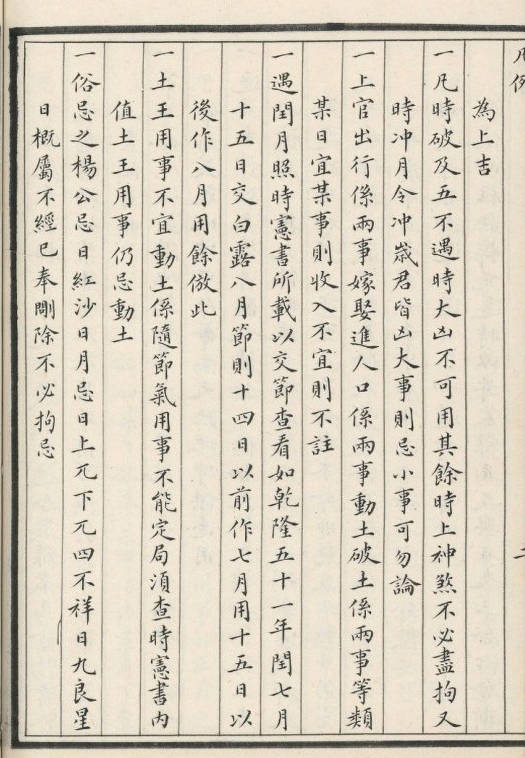 凡例
為上吉
一凡時破及五不遇時大凶不可用其餘時上神煞不必盡拘又
時冲月令冲嵗君皆凶大事則忌小事可勿論
一上官出行係兩事嫁娶進人口係兩事動土破土係兩事等類
某日宜某事則收入不宜則不註
一遇閏月照時憲書所載以交節查看如乾隆五十一年閏七月
十五日交白露八月節則十四日以前作七月用十五日以
後作八月用餘倣此
一土王用事不宜動土係隨節氣用事不能定局須查時憲書内
值土王用事仍忌動土
一俗忌之楊公忌日紅沙日月忌日上兀下兀四不祥日九良星
日概屬不經已奉刪除不必拘忌